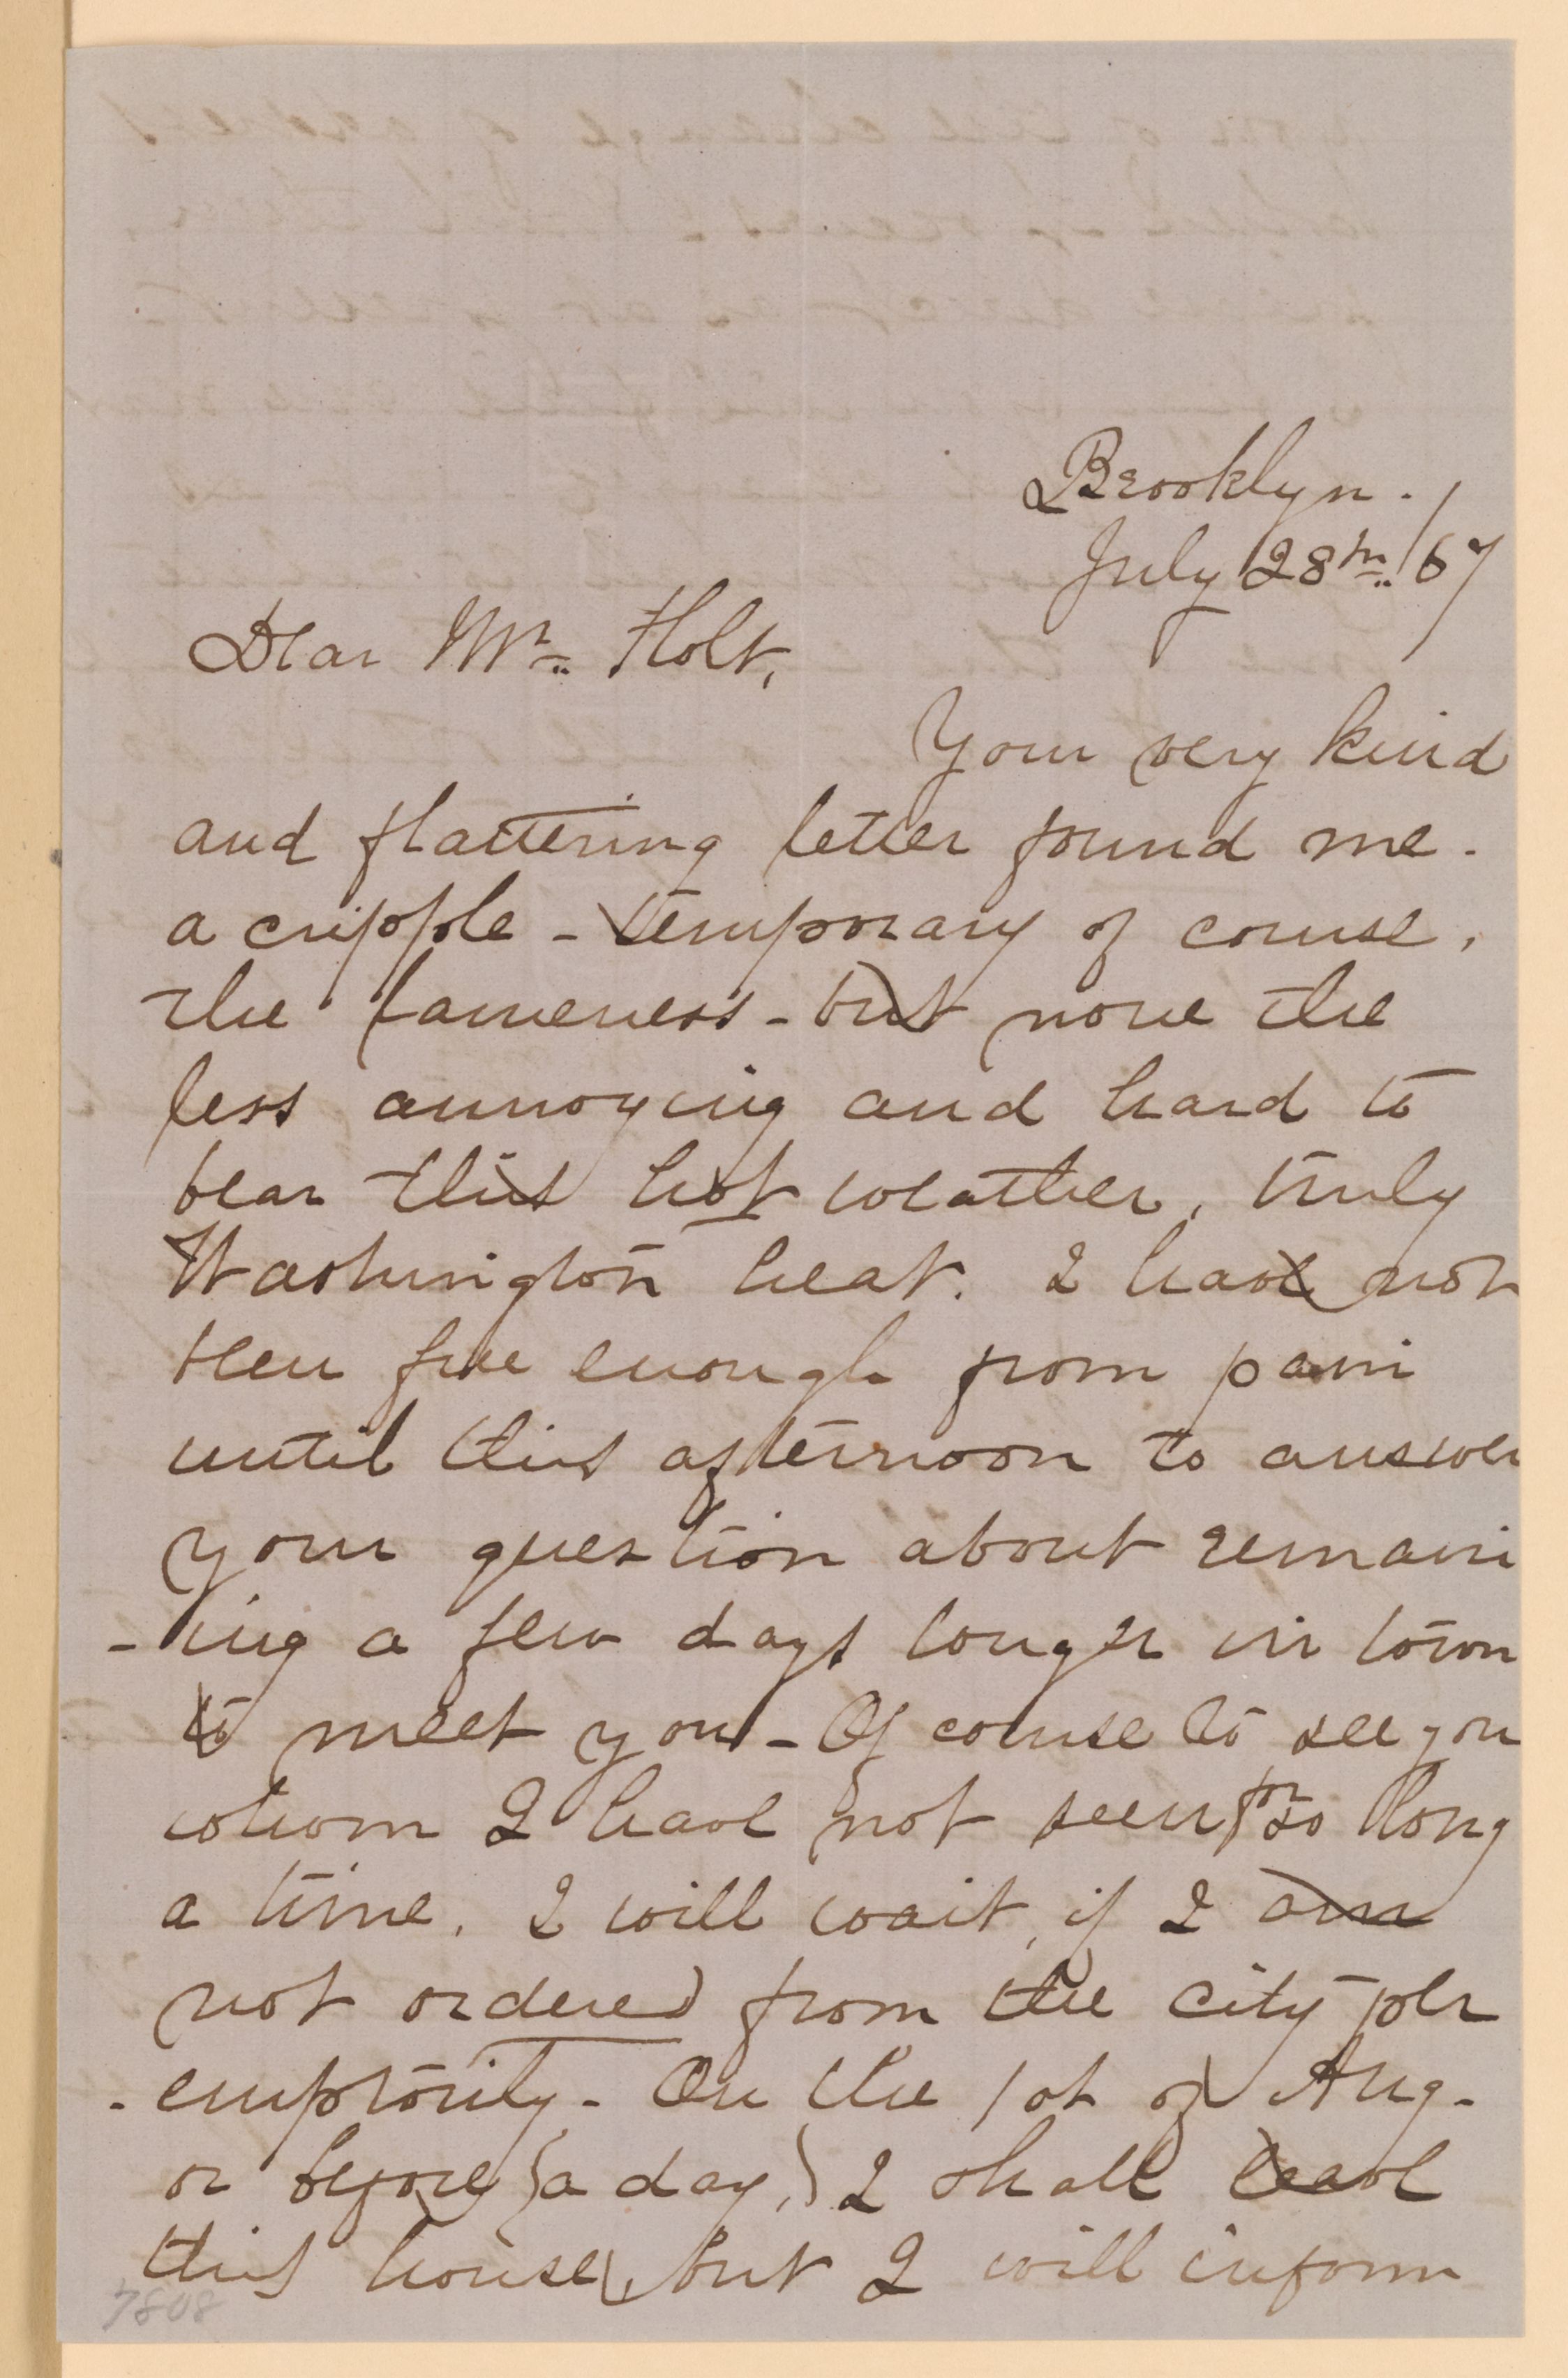 Brooklyn.
July 28th /67
Dear Mr. Holt,
Your very kind
and flattering letter found me.
a cripple - temporary of course,
the lameness - but none the
less annoying and hard to
bear this hot weather, truly
Washington heat. I have not
been free enough from pain
until this afternoon to answer
your question about remain
-ing a few days longer in town
to meet you - Of course to see you
whom I have not seen for so long
a time, I will wait, if I am
not ordered from the city per
-emptorily - On the 1st of Aug -
or before (a day,) I shall leave
this house, but I will inform
7808